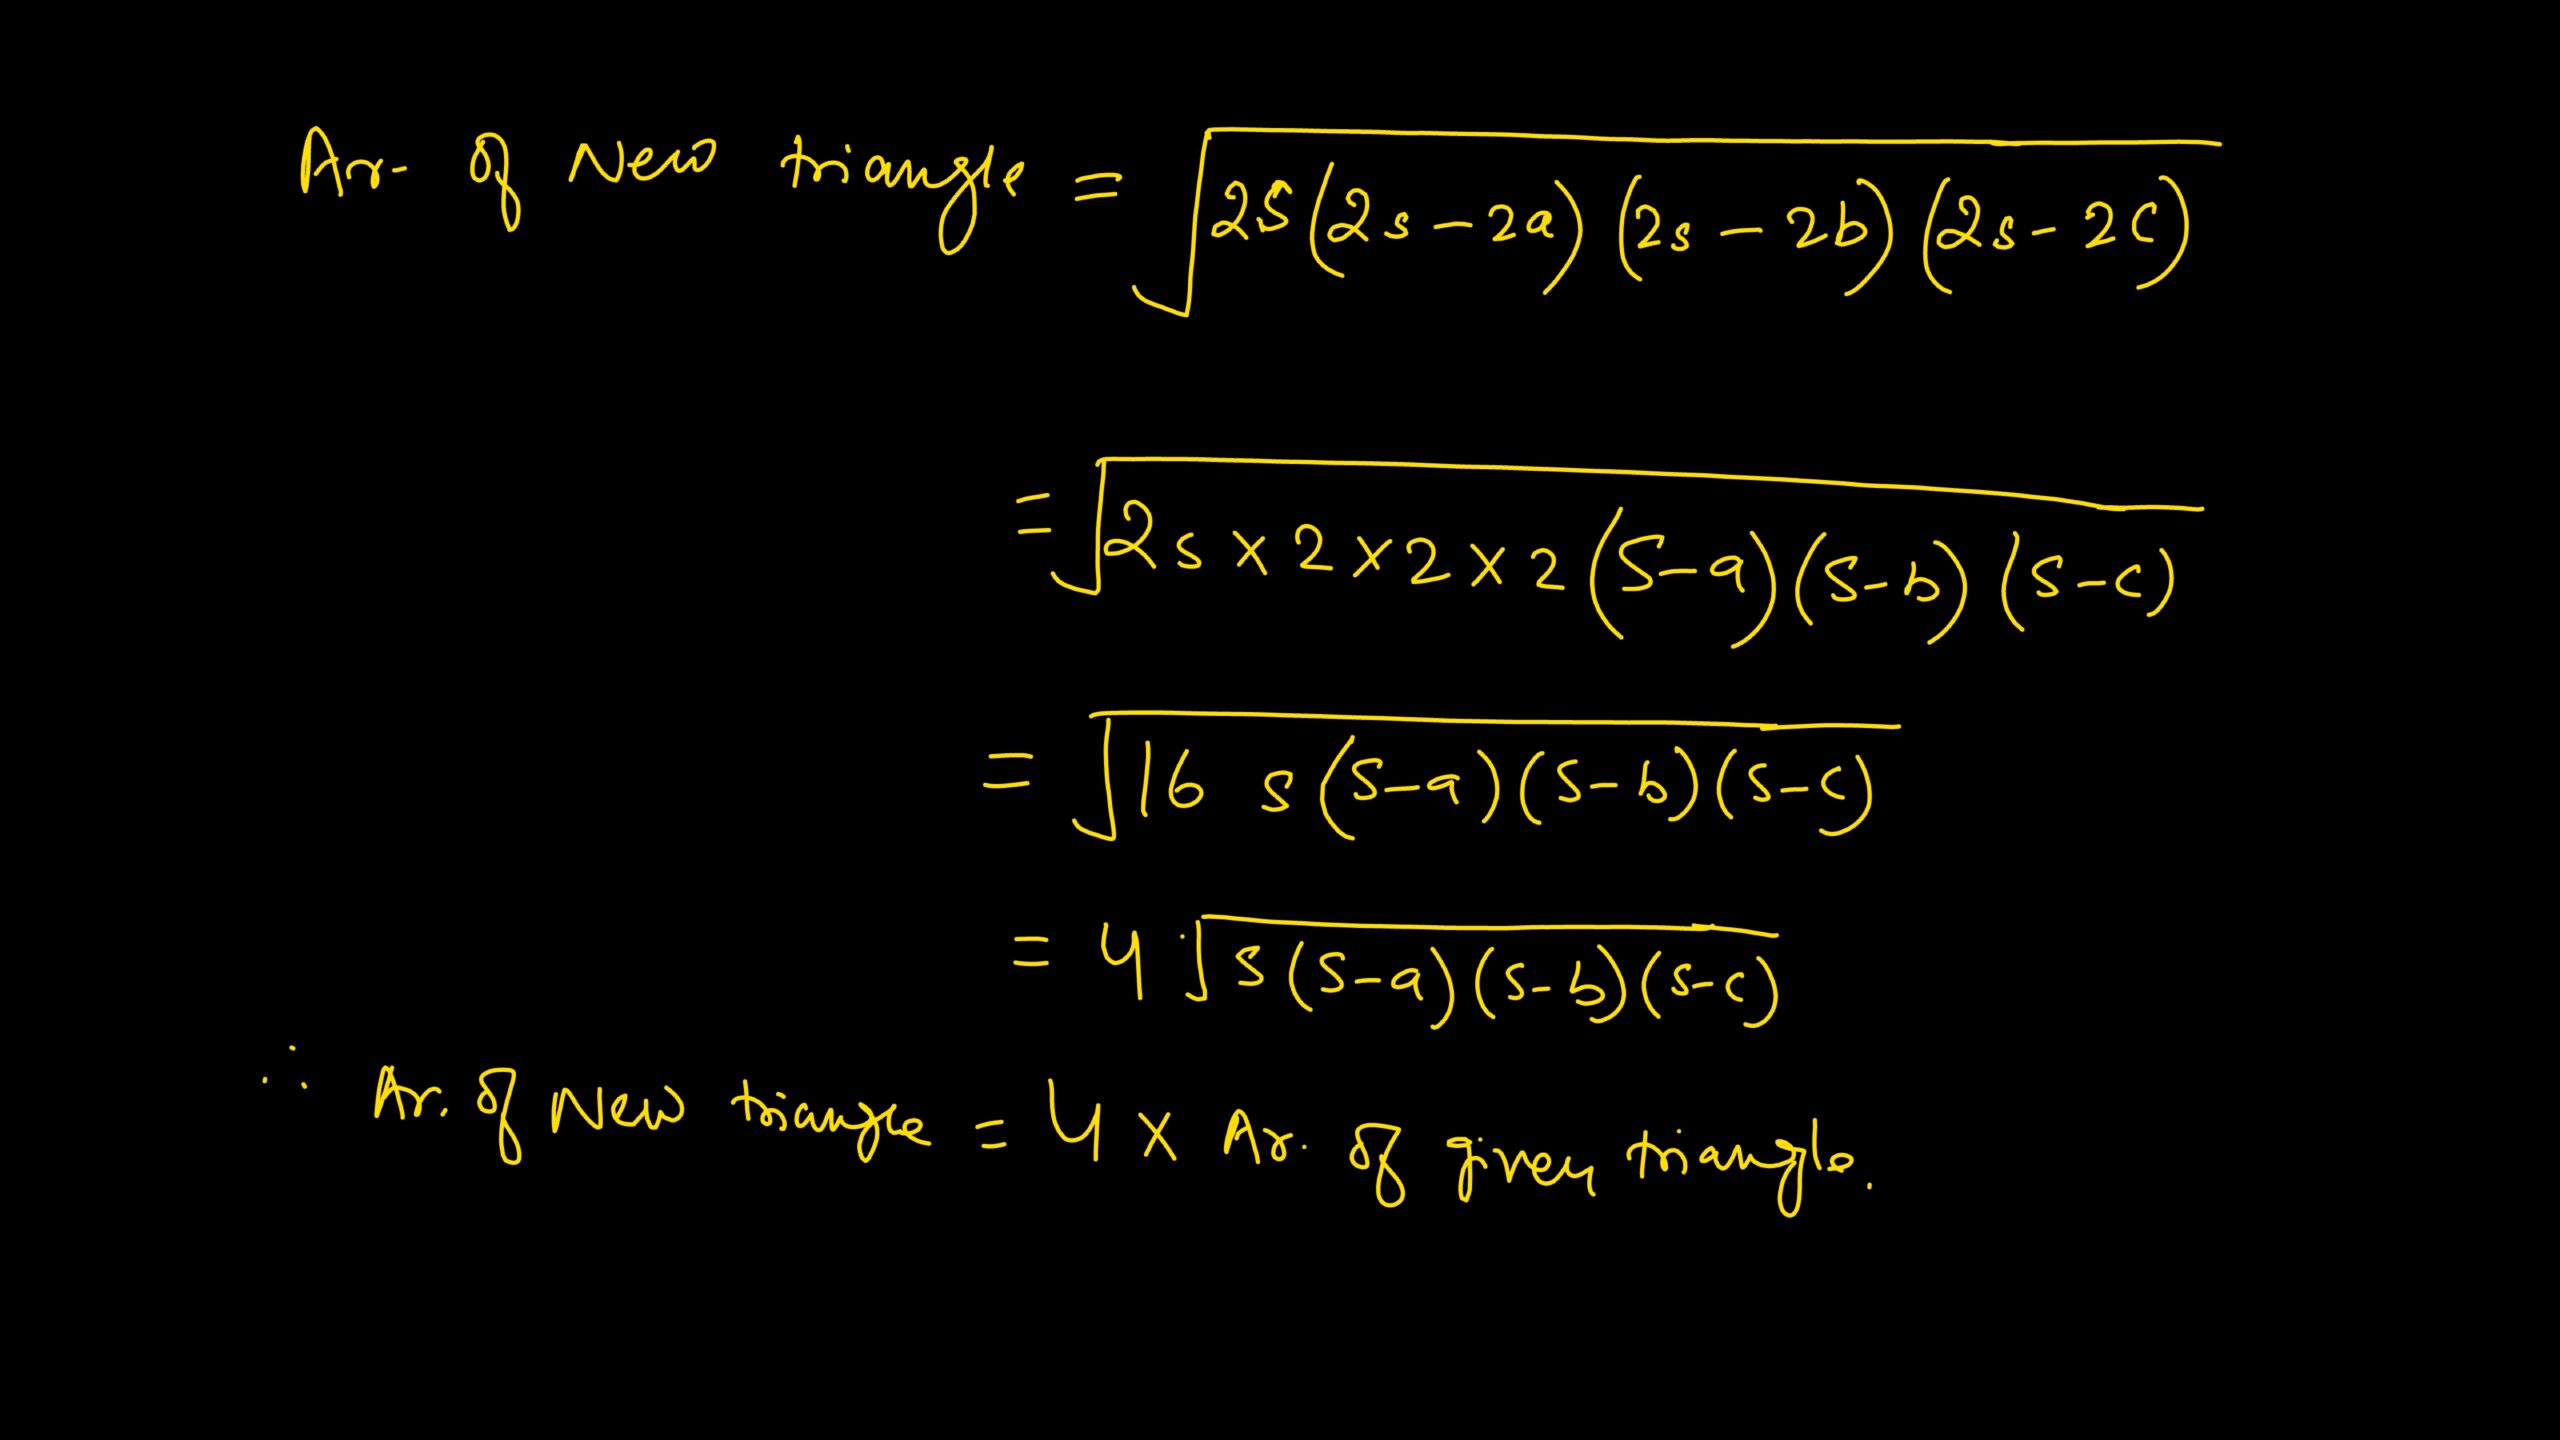 Ar. of New triangle = √2S(2s-2a)(2s-2b)(2s-2c)
= √2s×2×2×2(S-a)(S-b)(S-c)
= √16 s(S-a)(S-b)(S-c)
= 4√s(S-a)(S-b)(S-c)
∴ Ar. of New triangle = 4 × Ar. of given triangle.